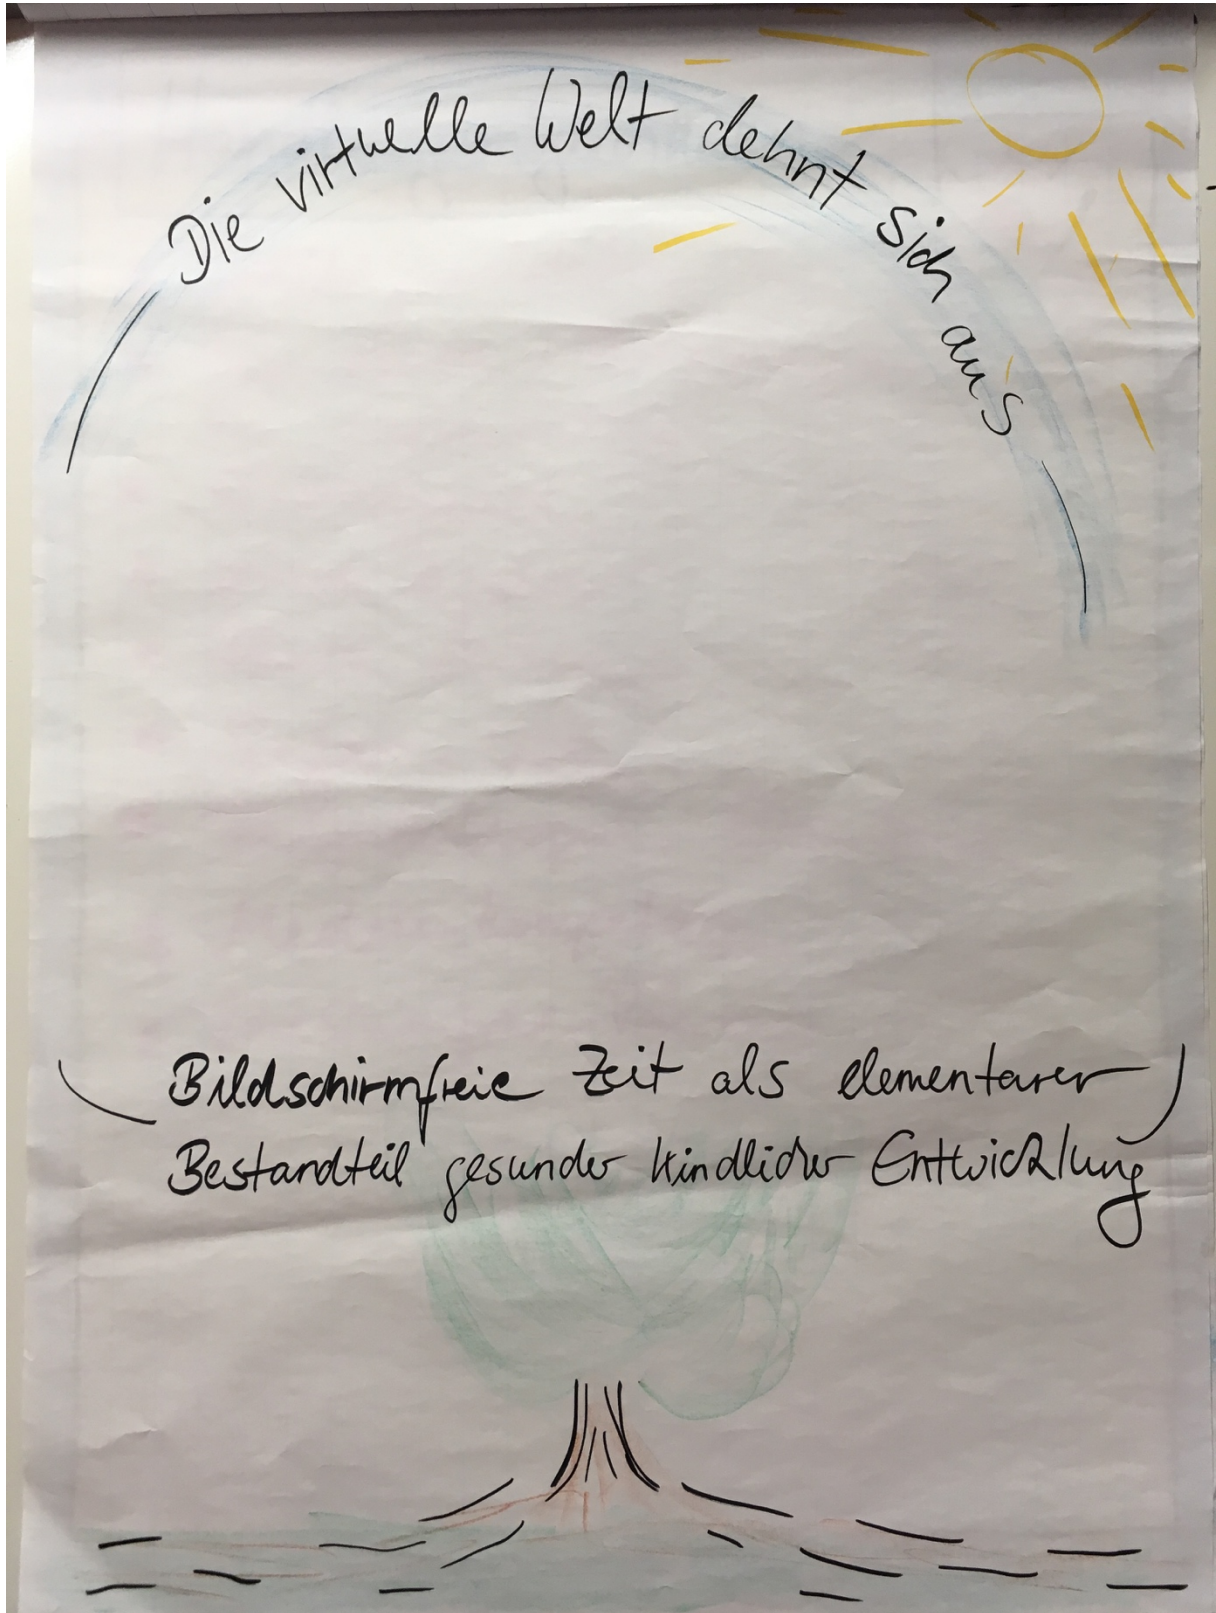 Die virtuelle Welt dehnt sich aus
Bildschirmfreie Zeit als elementarer
Bestandteil gesunder kindlicher Entwicklung